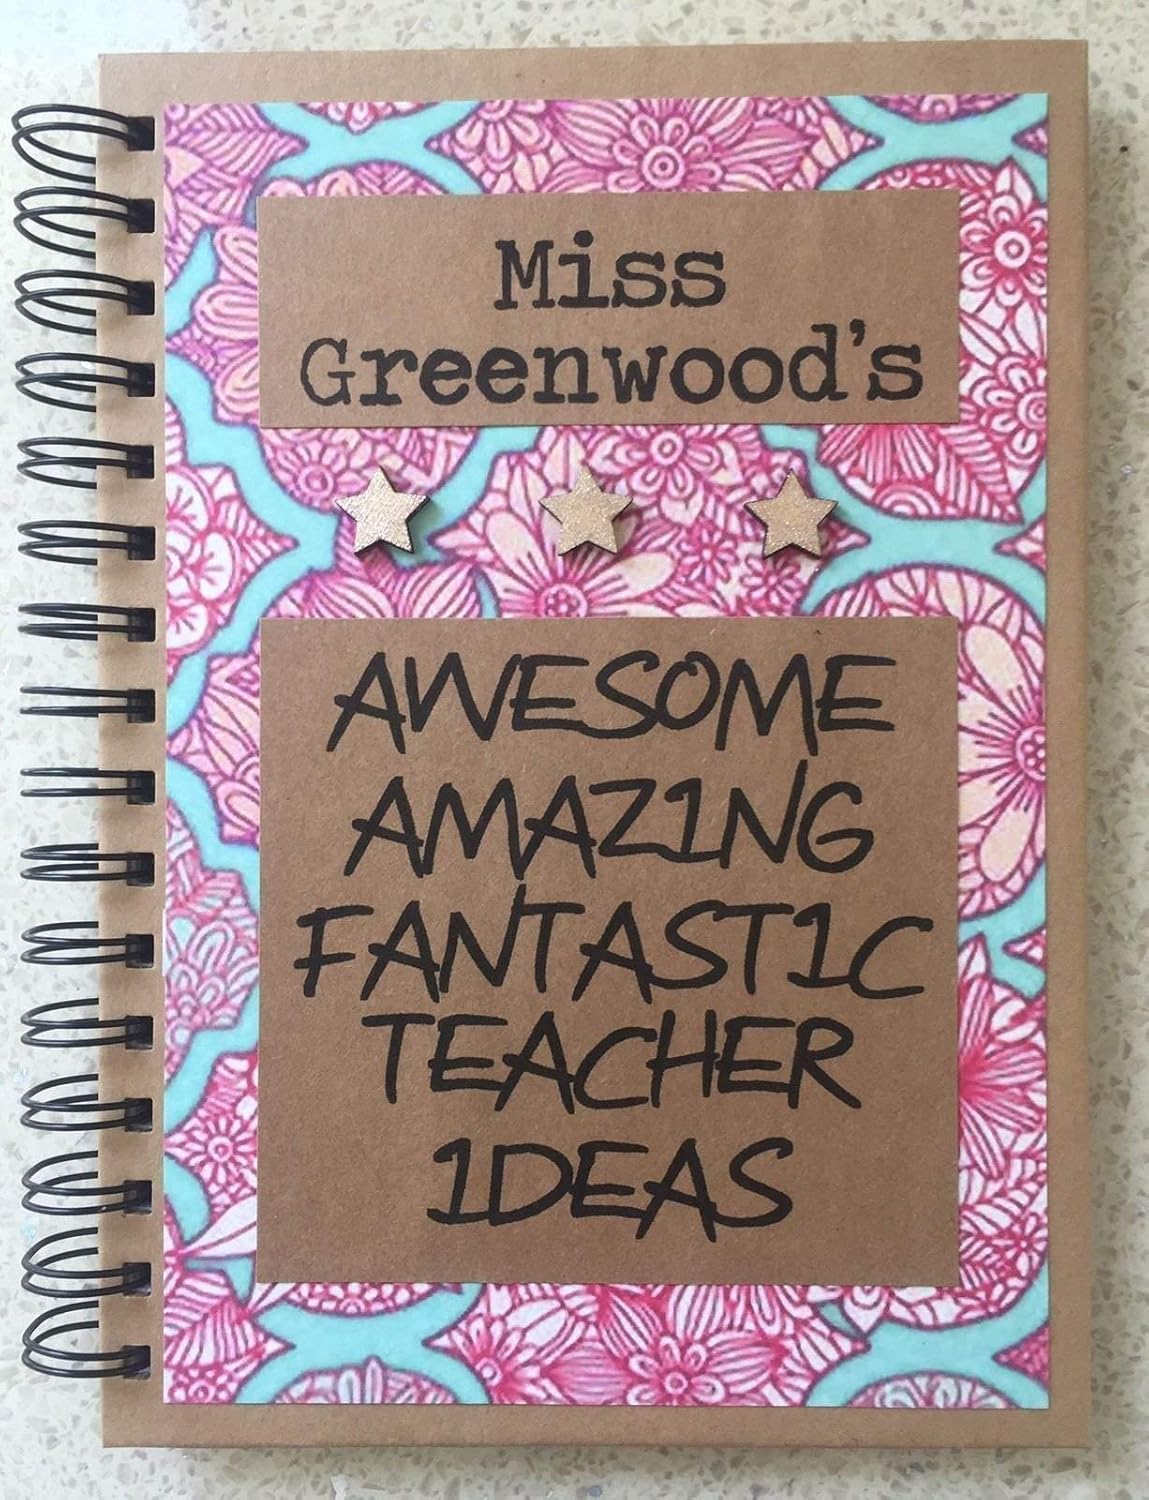 Miss
Greenwood's
AWESOME
AMAZING
FANTASTIC
TEACHER
IDEAS